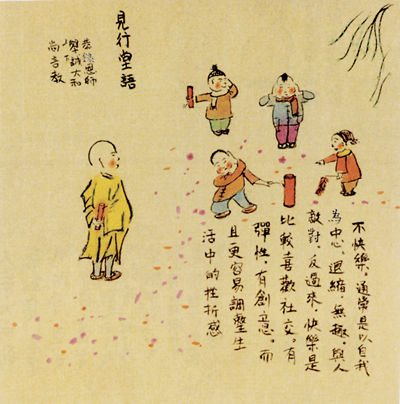 見行堂語
恭錄恩師
學誠大和
尚言教
不快樂，通常是以自我
為中心、退縮、無趣、與人
敵對。反過來，快樂是
比較喜歡社交。有
彈性，有創意。而
且更容易調整生
活中的挫折感